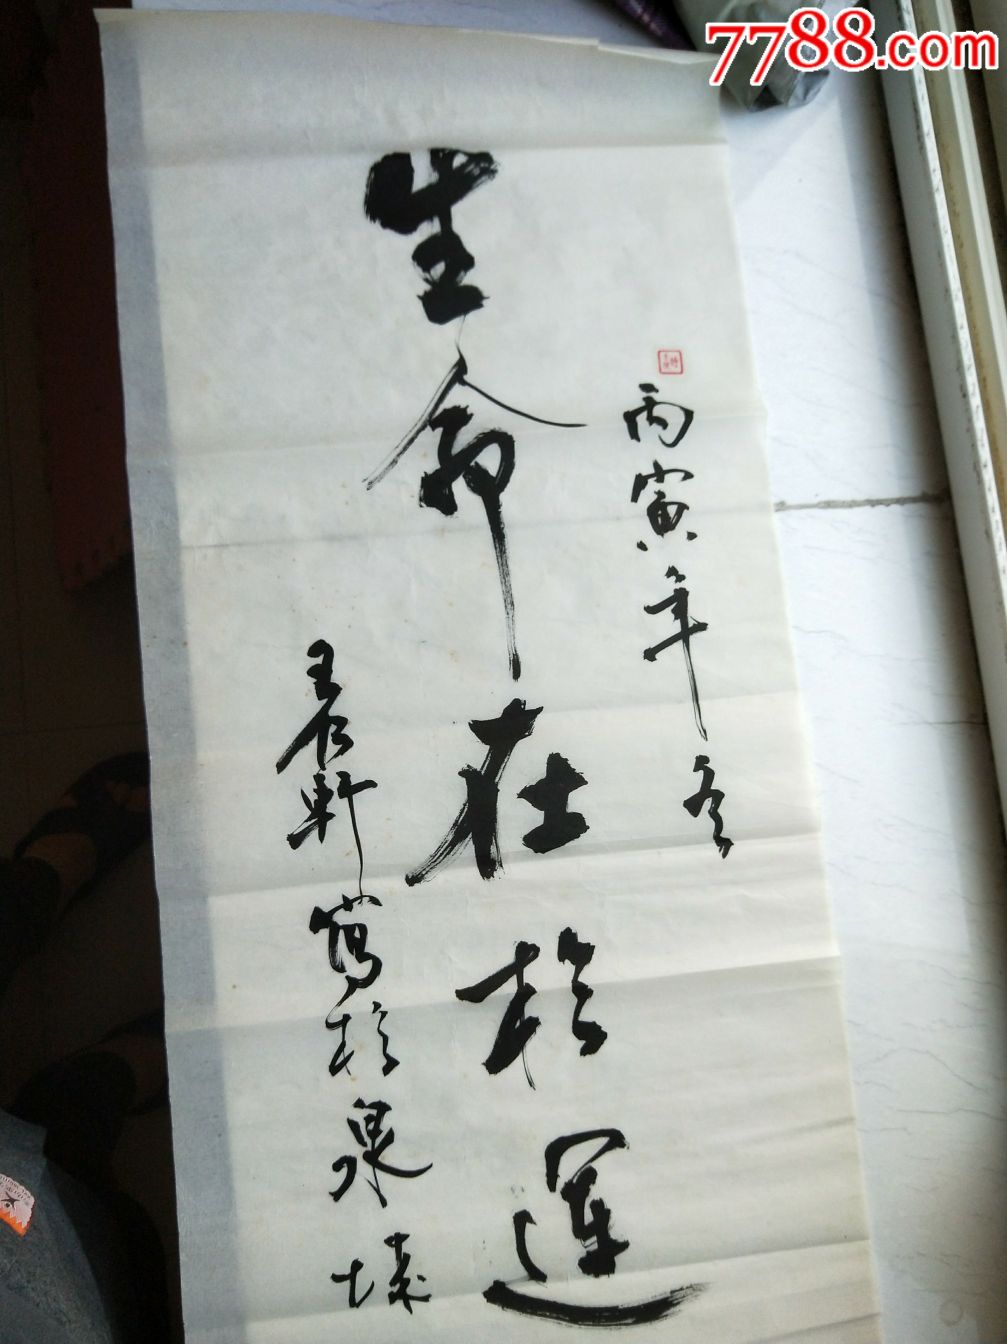 7788.com
丙寅年冬
生命在於運
王君軒寫於泉城